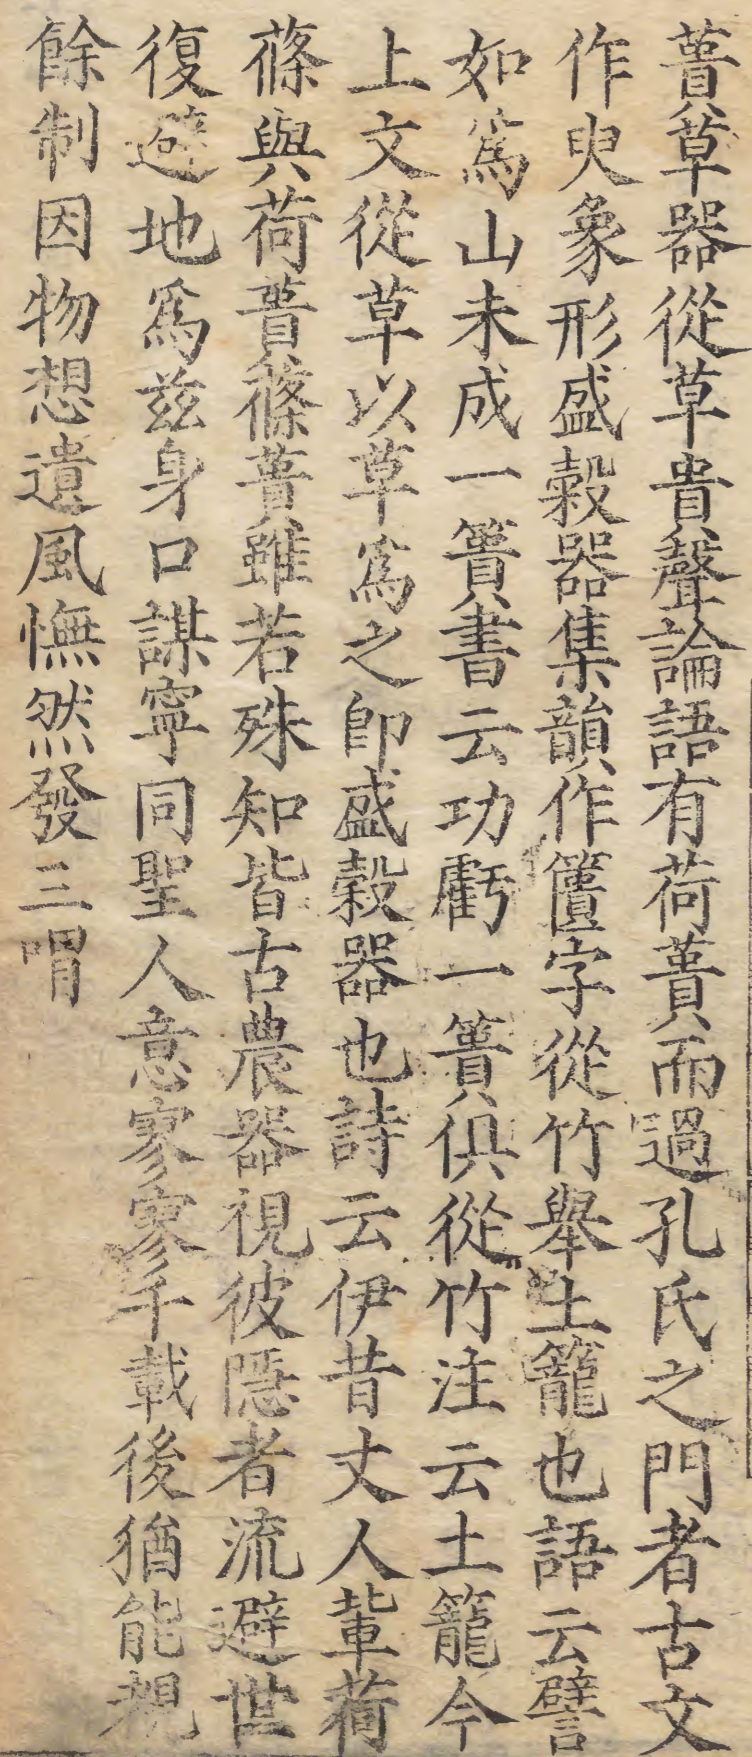 蕢草器從草貴聲論語有荷蕢而過孔氏之門者古文
作臾象形盛穀器集韻作籄字從竹舉土籠也語云譬
如爲山未成一簣書云功虧一簣俱從竹注云土籠今
上文從草以草爲之卽盛穀器也詩云伊昔丈人輩荷
蓧與荷蕢蓧蕢雖若殊知皆古農器視彼隱者流避世
復避地爲兹身口謀寧同聖人意寥寥千載後猶能覩
餘制因物想遺風憮然發三喟